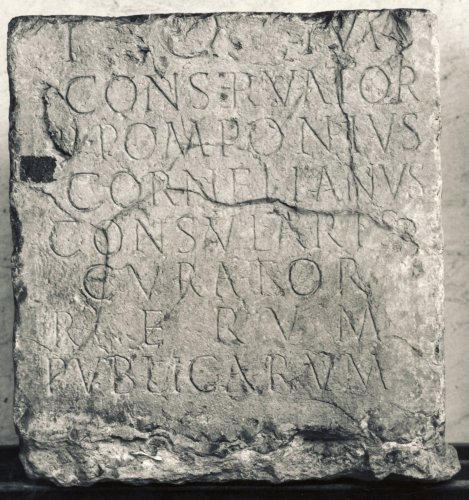 CONSERVATOR
POMPONIVS
CORNELIANVS
CONSVLARIS
CVRATOR
RERVM
PVBLICARVM